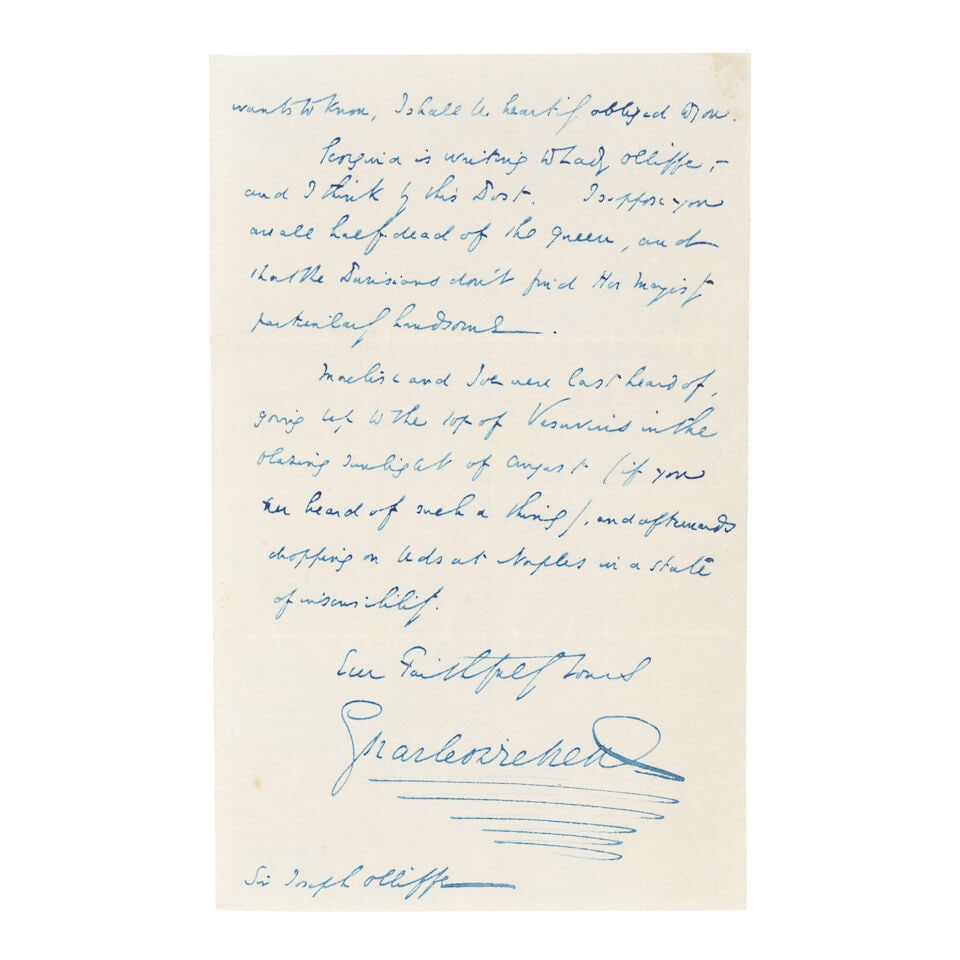 wants to know, I shall be heartily obliged to you.
Georgina is writing to Lady Olliffe,—
and I think by this Post. I suppose you
are all half dead of the Queen, and
that the Parisians don't find Her Majesty
particularly handsome.
Maclise and Joe were last heard of,
going up to the top of Vesuvius in the
blazing sunlight of August (if you
ever heard of such a thing), and afterwards
dropping on beds at Naples in a state
of insensibility.
Ever Faithfully Yours
Charles Dickens
Sir Joseph Olliffe